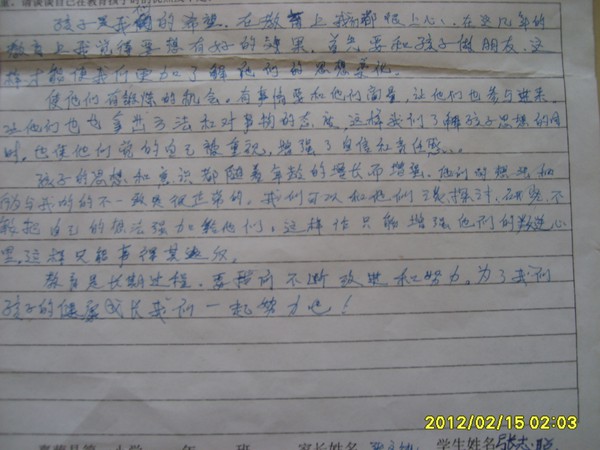 请谈谈自己在教育孩子
孩子是我们的希望。在教育上我们都很上心、在这几年的
教育上我觉得要想有好的效果,首先要和孩子做朋友,这
样才能使我们更加了解他们的思想变化。
使他们有锻炼的机会,有事情要和他们商量,让他们也参与进来,
让他们也拿出方法和对事物的态度,这样我们了解孩子思想的同
时,也使他们觉的自己被重视,增强了自信和责任感…
孩子的思想和意识都随着年龄的增长而增强,他们的想法和
我们的不一致是很正常的,我们可以和他们一起探讨、研究,不
能把自己的想法强加给他们,这样作只能增强他们的叛逆心
里,这样只能事得其反。
教育是长期过程,要指向不断改进和努力。为了我们
孩子的健康成长我们一起努力吧!
2012/02/15 02:03
小学 年 班 家长姓名 学生姓名